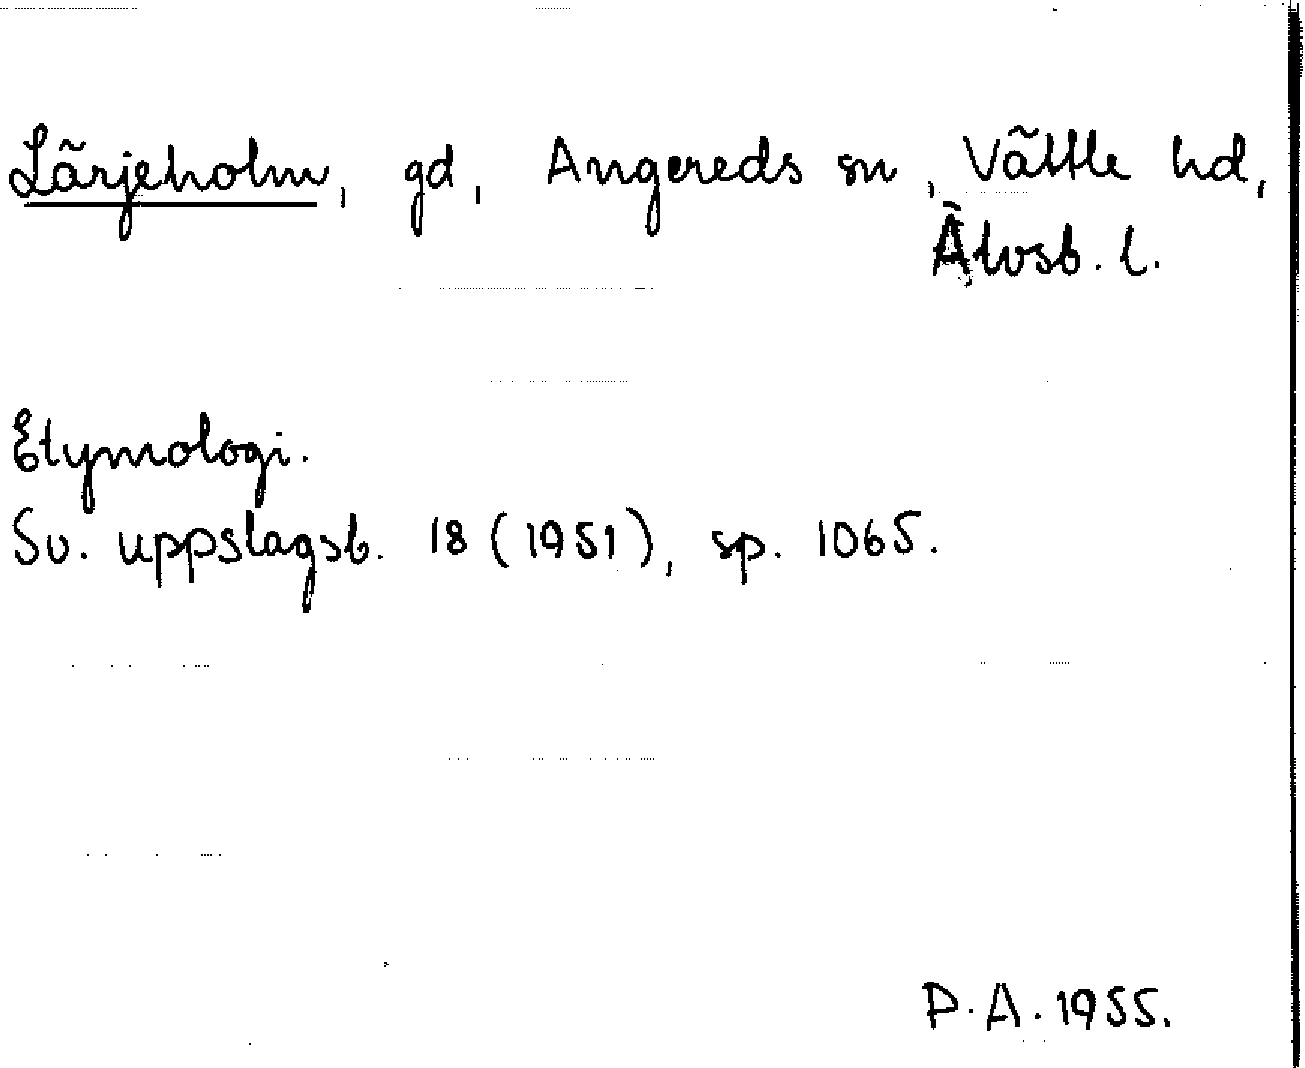 Lärjeholm, gd, Angereds sn, Vättle hd,
Älvsb. l.
Etymologi.
Sv. uppslagsb. 18 (1951), sp. 1065.
P.A. 1955.